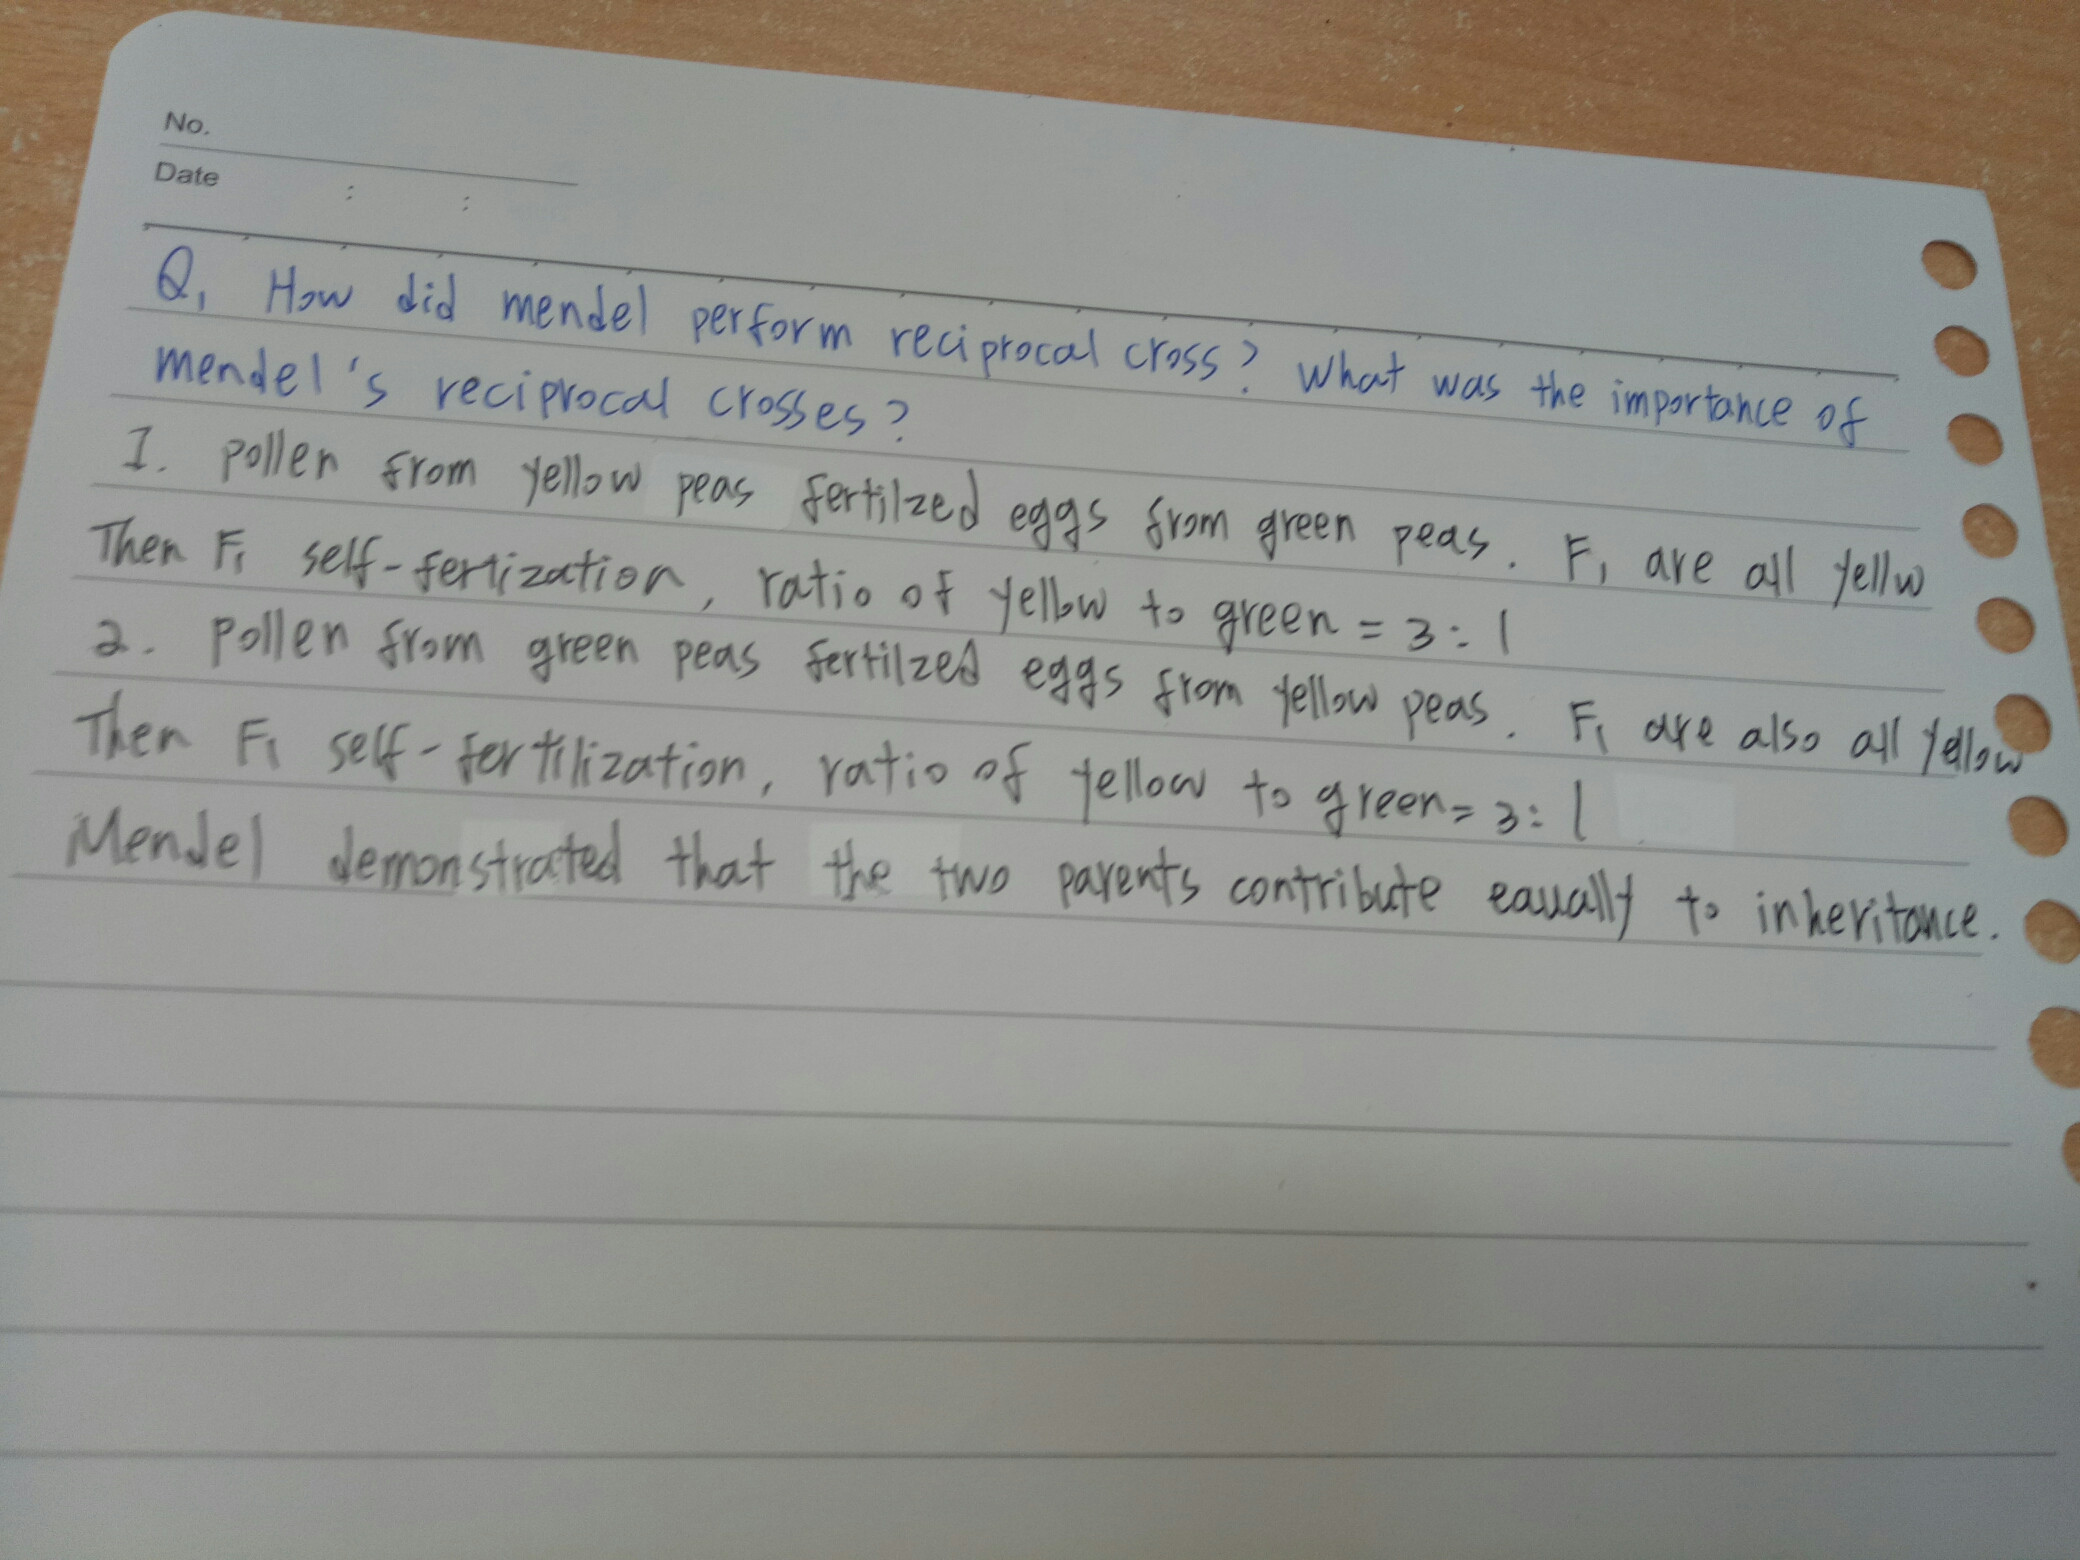 No.
Date : :
Q, How did mendel perform reciprocal cross? What was the importance of
mendel's reciprocal crosses?
1. pollen from yellow peas fertilzed eggs from green peas. F1 are all yellw
Then F1 self-fertization, ratio of yellow to green = 3:1
2. pollen from green peas fertilzed eggs from yellow peas. F1 are also all yellow
Then F1 self-fertilization, ratio of yellow to green = 3:1
Mendel demonstrated that the two parents contribute eaually to inheritance.